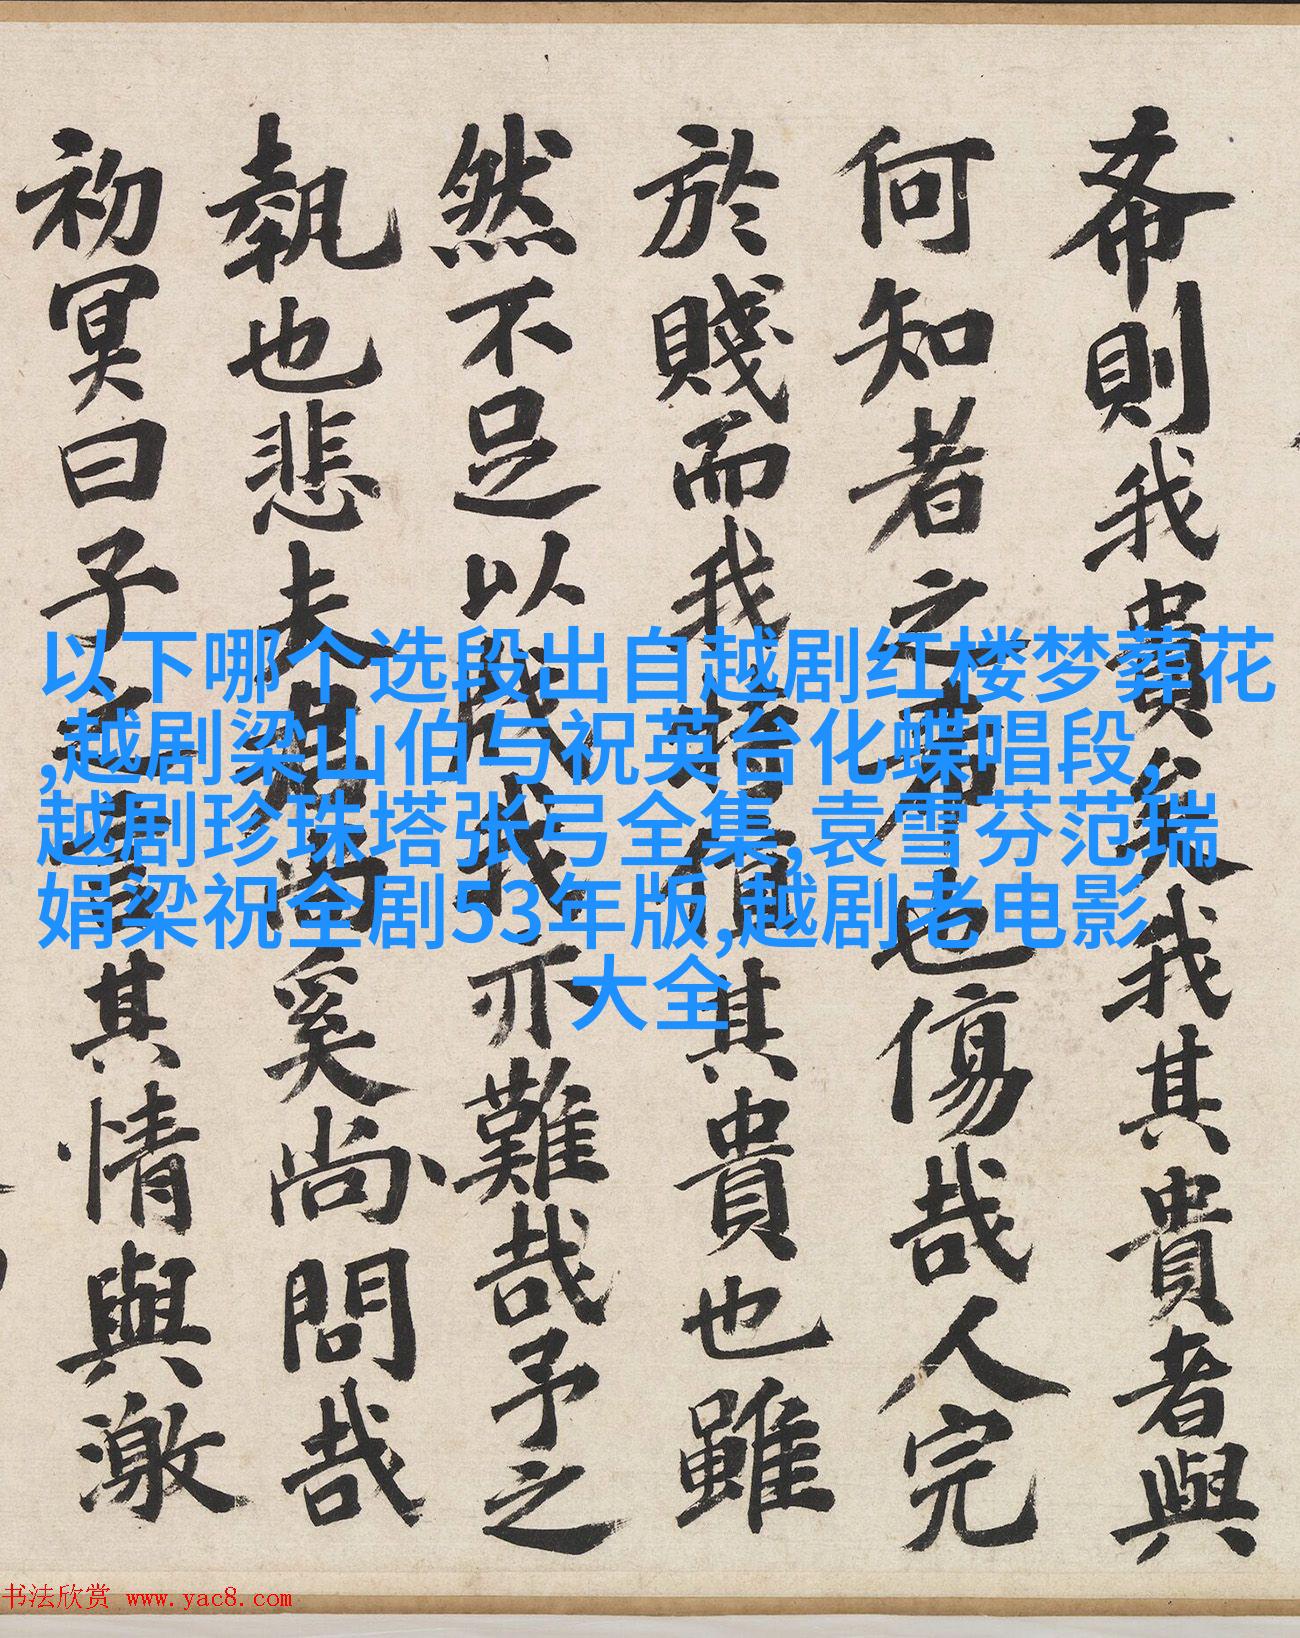 希則我貴矣我其貴者與
何知者之寡也傷哉人完
於賤而我其貴也雖
然不足以成我亦難哉予之
執也悲夫奚尚問哉
初冥曰子之言其情與激
以下哪个选段出自越剧红楼梦葬花
,越剧梁山伯与祝英台化蝶唱段,
越剧珍珠塔张弓全集,袁雪芬范瑞
娟梁祝全剧53年版,越剧老电影
大全
书法欣赏 www.yac8.com